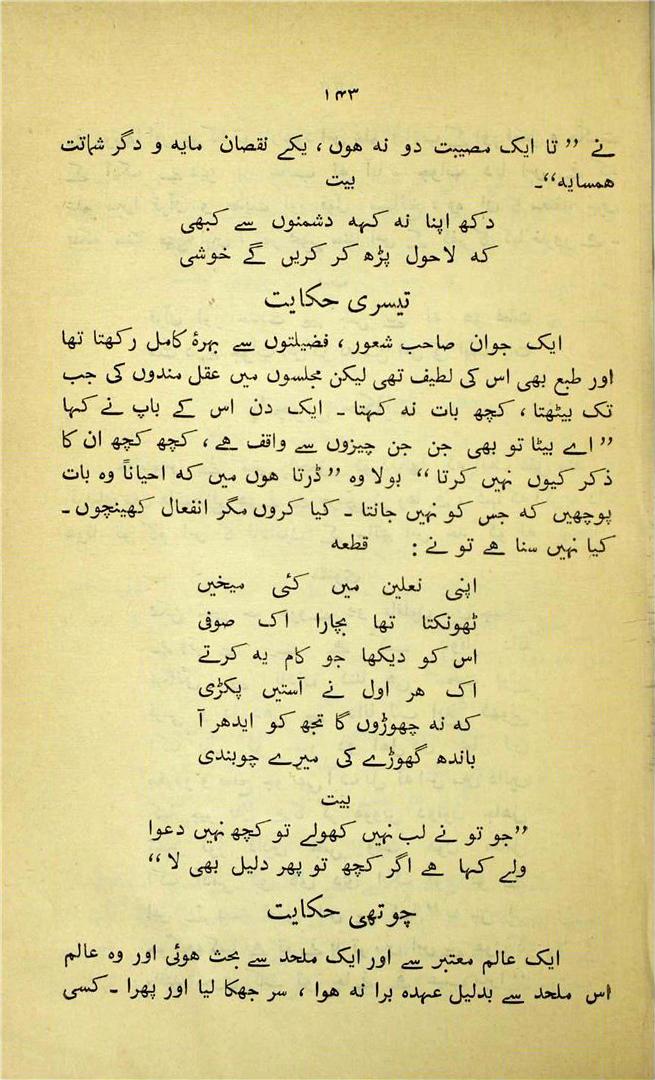 ۱۴۳
نے ” تا ایک مصیبت دو نہ ہوں ، یکے نقصان مایہ و دگر شماتت
ہمسایہ“۔ بیت
دکھ اپنا نہ کہہ دشمنوں سے کبھی
کہ لاحول پڑھ کر کریں گے خوشی
تیسری حکایت
ایک جوان صاحب شعور ، فضیلتوں سے بہرۂ کامل رکھتا تھا
اور طبع بھی اس کی لطیف تھی لیکن مجلسوں میں عقل مندوں کی جب
تک بیٹھتا ، کچھ بات نہ کہتا ۔ ایک دن اس کے باپ نے کہا
” اے بیٹا تو بھی جن جن چیزوں سے واقف ہے ، کچھ کچھ ان کا
ذکر کیوں نہیں کرتا “ بولا وہ ” ڈرتا ہوں میں کہ احیاناً وہ بات
پوچھیں کہ جس کو نہیں جانتا ۔ کیا کروں مگر انفعال کھینچوں ۔
کیا نہیں سنا ہے تو نے : قطعہ
اپنی نعلین میں کئی میخیں
ٹھونکتا تھا بچارا اک صوفی
اس کو دیکھا جو کام یہ کرتے
اک ہر اول نے آستیں پکڑی
کہ نہ چھوڑوں گا تجھ کو ایدھر آ
باندھ گھوڑے کی میرے چوبندی
بیت
”جو تو نے لب نہیں کھولے تو کچھ نہیں دعوا
ولے کہا ہے اگر کچھ تو پھر دلیل بھی لا “
چوتھی حکایت
ایک عالم معتبر سے اور ایک ملحد سے بحث ہوئی اور وہ عالم
اس ملحد سے بدلیل عہدہ برا نہ ہوا ، سر جھکا لیا اور پھرا ۔ کسی